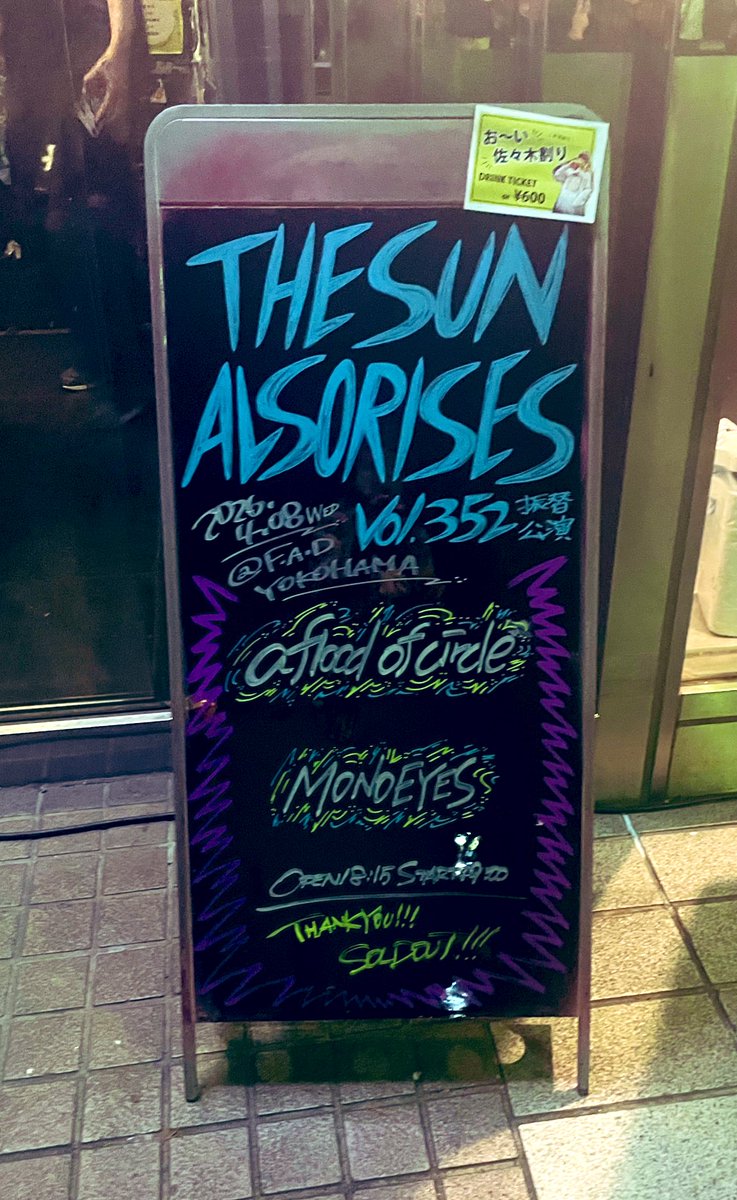 お〜い
佐々木割り
DRINK TICKET
¥600
THE SUN
ALSO RISES
2026.
4.08 WED
Vol.352
振替
公演
@F.A.D
YOKOHAMA
a flood of circle
MONOEYES
OPEN 18:15 START 19:00
THANK YOU!!!
SOLD OUT!!!